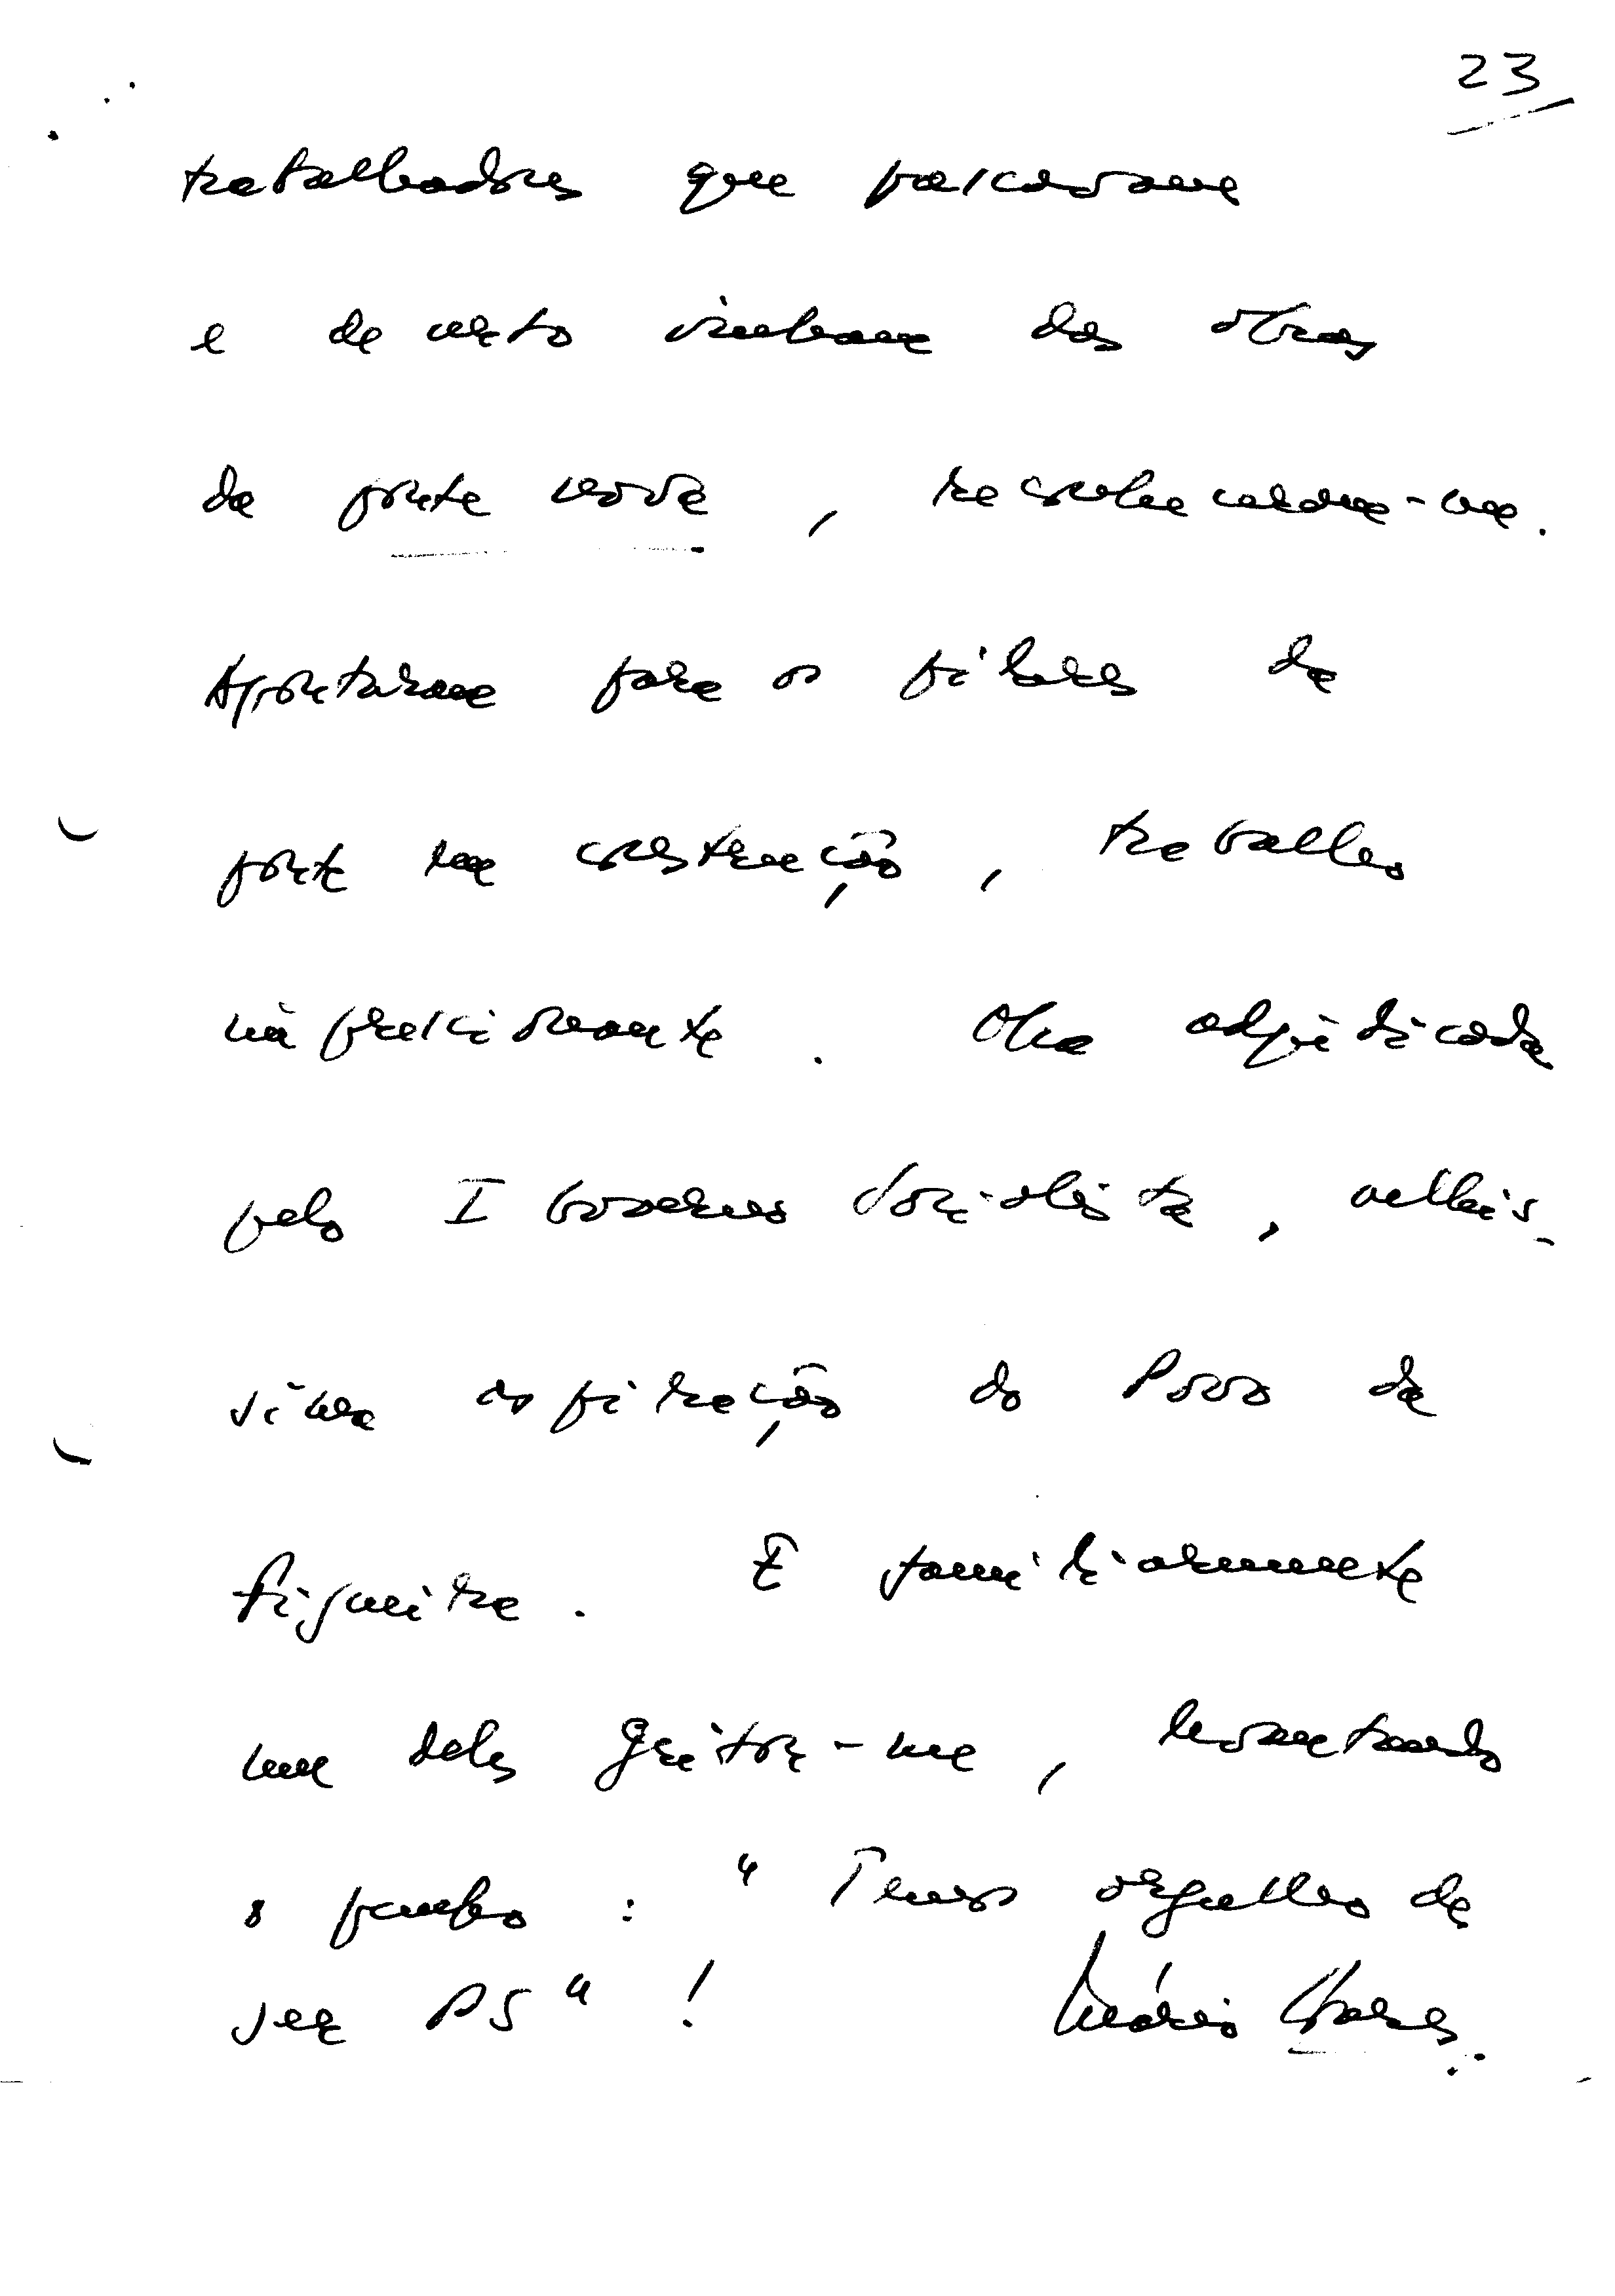 23
trabalhadores que passavam
e de certo vinham das obras
da ponte nova, reconheceram-me.
Apontaram para os pilares da
ponte em construção, trabalho
impressionante. Obra adjudicada
pelo I Governo Socialista, velhís-
sima aspiração do Povo da
Figueira. E familiarmente
um deles gritou-me, levantando
o punho: "Tenho orgulho de
ser PS"! Mário Soares